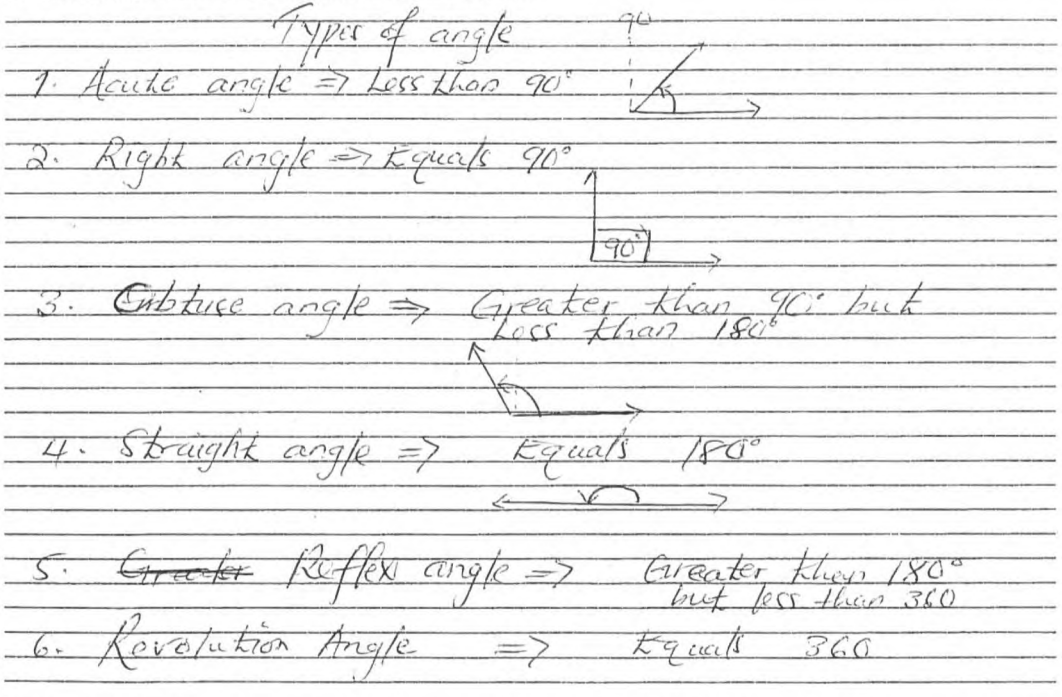 Types of angle
90
1. Acute angle => Less than 90°
2. Right angle => Equals 90°
90°
3. Obtuse angle => Greater than 90° but
Less than 180°
4. Straight angle => Equals 180°
5. Greater Reflex angle => Greater than 180°
but less than 360
6. Revolution Angle => Equals 360